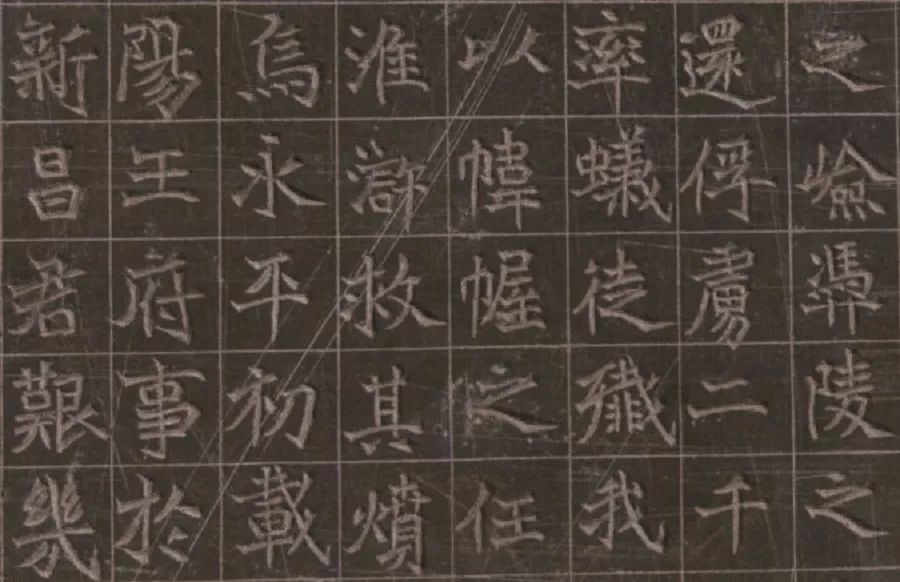 之嶮憑陵之
還俘虜二千
率蟻徒殲我
以幃幄之任
淮滸救其燌
焉永平初載
陽王府事於
新昌君艱幾